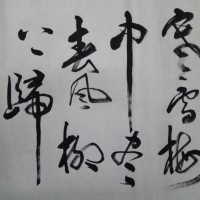 寒雪梅
中尽
春風柳
上歸